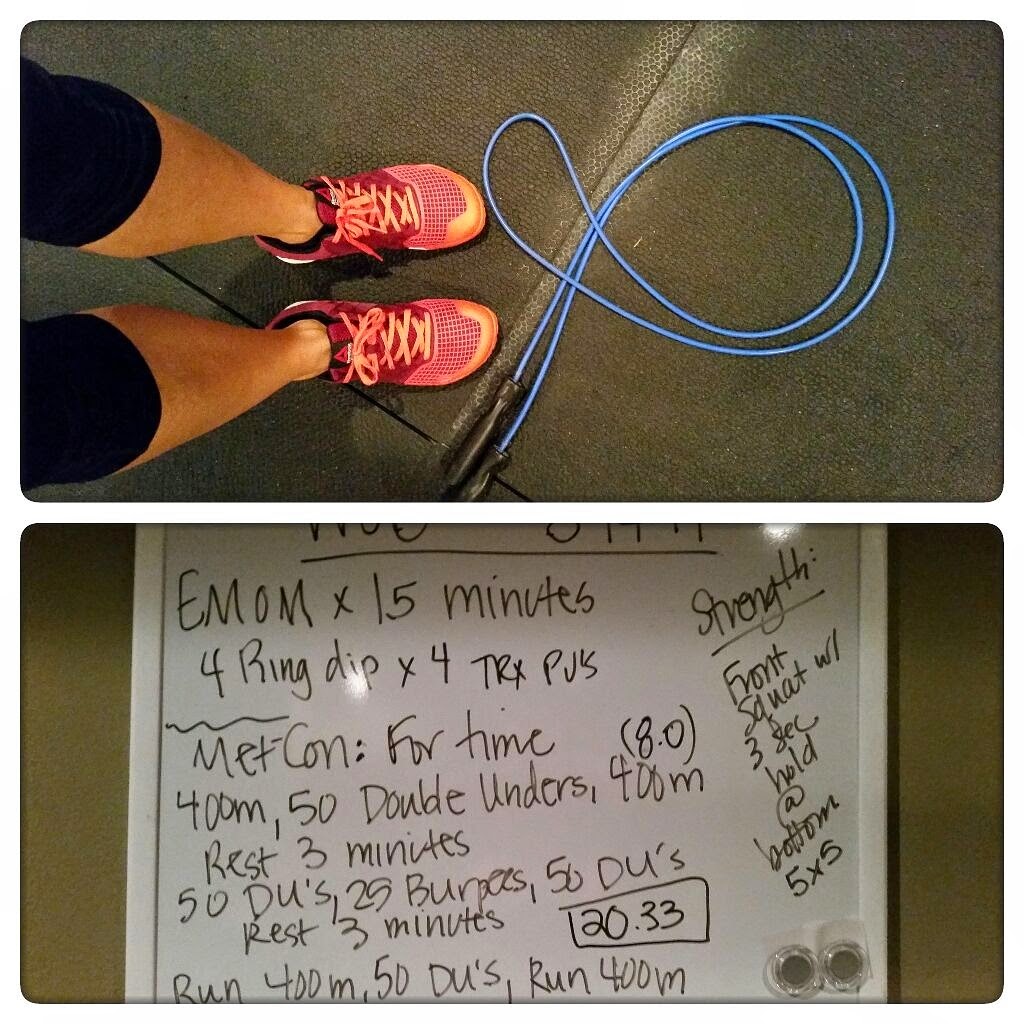 EMOM x 15 minutes
4 Ring dip x 4 TRX PU's
Met-Con: For time (8.0)
400m, 50 Double Unders, 400m
Rest 3 minutes
50 DU's, 25 Burpees, 50 DU's
Rest 3 minutes
20.33
Run 400m, 50 DU's, Run 400m
Strength:
Front
Squat w/
3 sec
hold
@
bottom
5x5